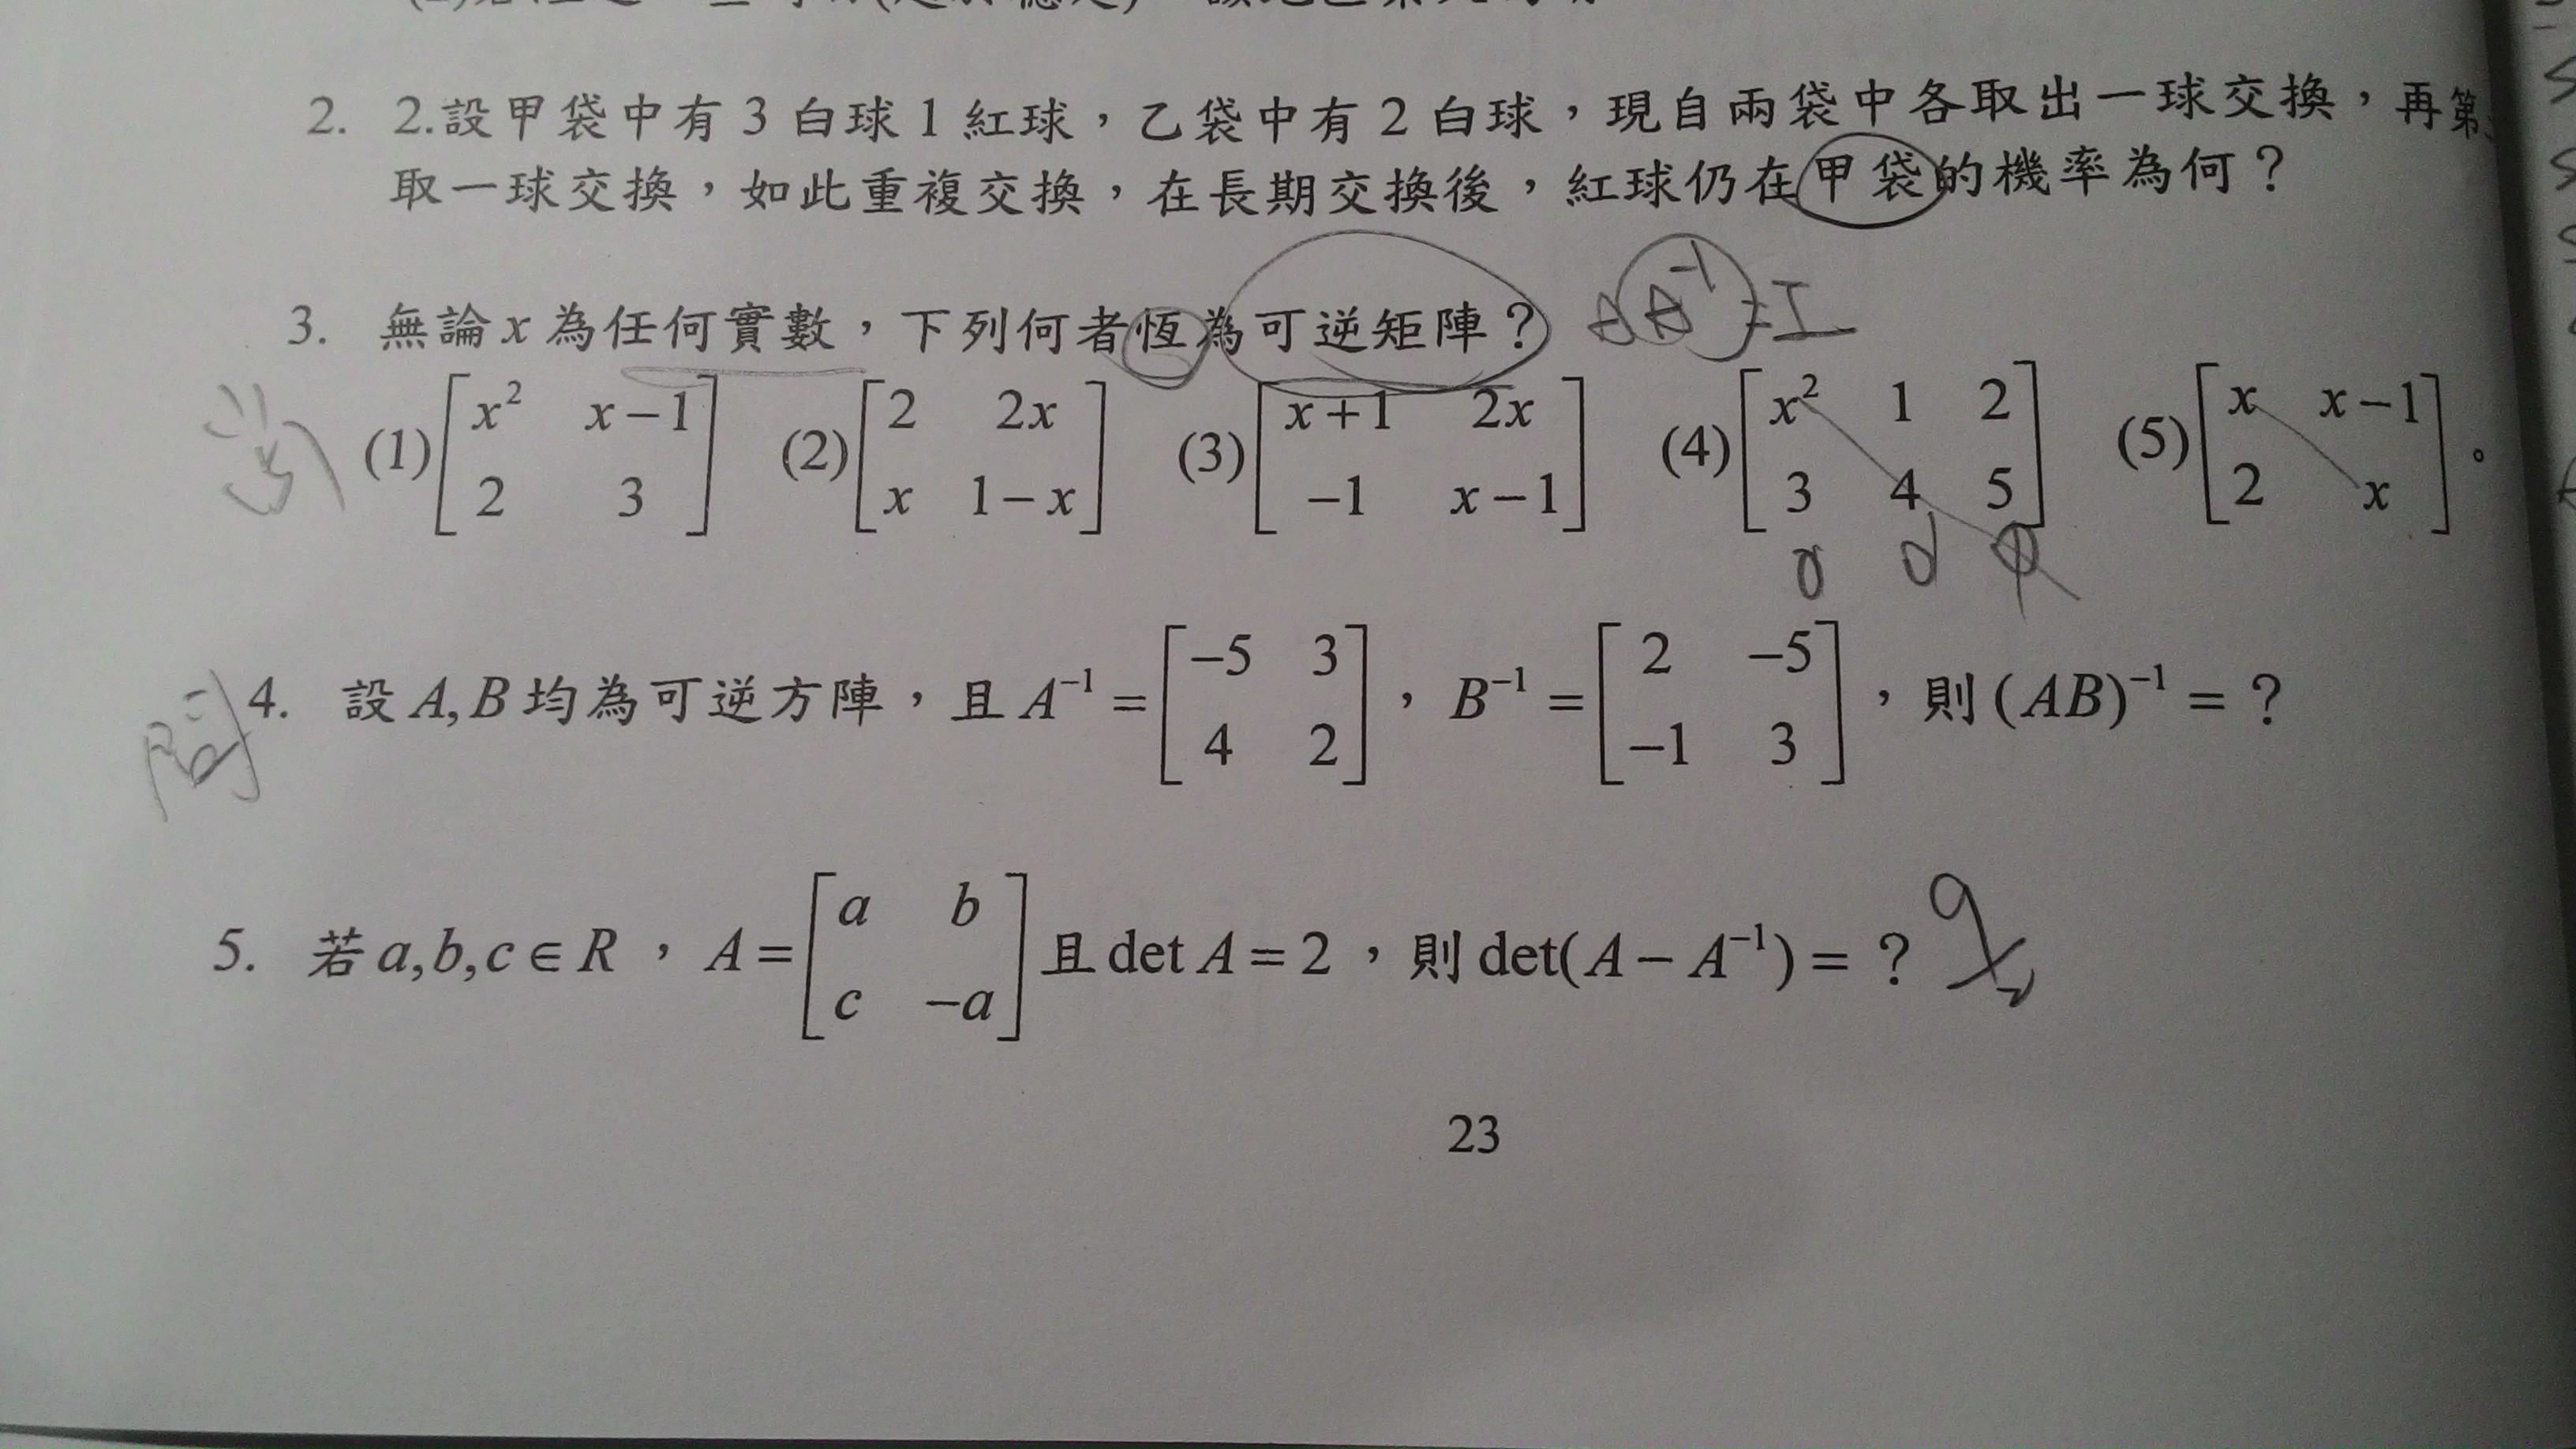 2. 2.設甲袋中有 3 白球 1 紅球，乙袋中有 2 白球，現自兩袋中各取出一球交換，再第
取一球交換，如此重複交換，在長期交換後，紅球仍在甲袋的機率為何？
3. 無論 x 為任何實數，下列何者恆為可逆矩陣？ AA⁻¹=I
(1)[x² x−1; 2 3] (2)[2 2x; x 1−x] (3)[x+1 2x; −1 x−1] (4)[x² 1 2; 3 4 5] (5)[x x−1; 2 x]。
0 0 0
問
4. 設 A, B 均為可逆方陣，且 A⁻¹ = [−5 3; 4 2]，B⁻¹ = [2 −5; −1 3]，則 (AB)⁻¹ = ？
5. 若 a,b,c ∈ R ，A = [a b; c −a] 且 det A = 2，則 det(A − A⁻¹) = ？
23